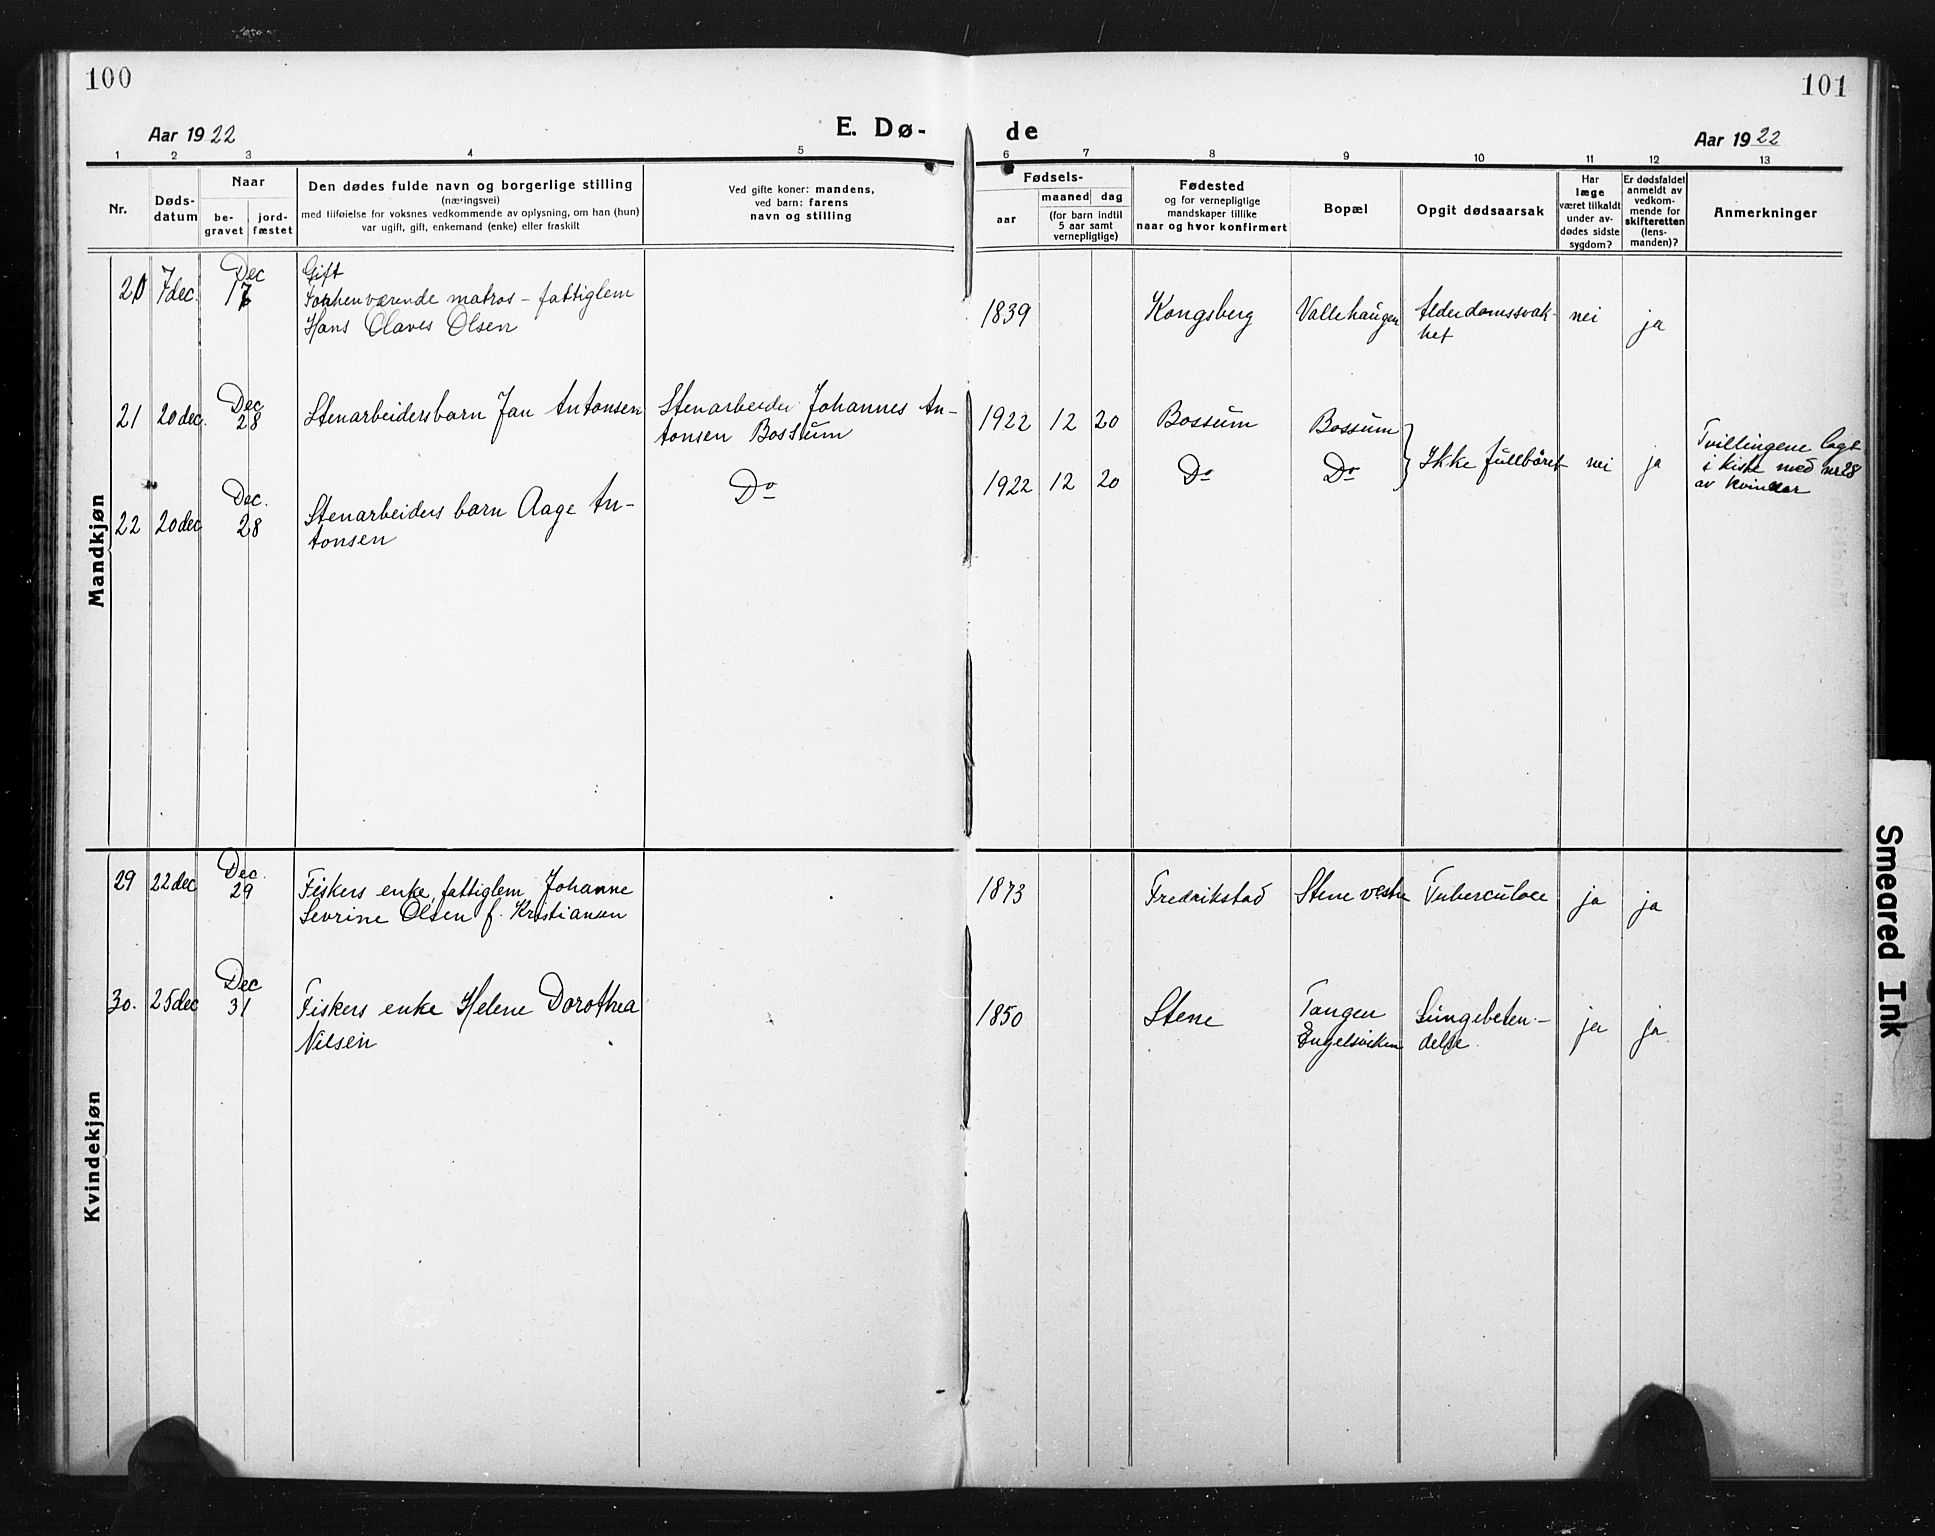 100
101
Aar 1922
E. Dø-
de
Aar 1922
1 2 3 4 5 6 7 8 9 10 11 12 13
Nr.
Døds-
datum
Naar
be-
gravet
jord-
fæstet
Den dødes fulde navn og borgerlige stilling
(næringsvei)
med tilføielse for voksnes vedkommende av oplysning, om han (hun)
var ugift, gift, enkemand (enke) eller fraskilt
Ved gifte koner: mandens,
ved barn: farens
navn og stilling
Fødsels-
aar
maaned dag
(for barn indtil
5 aar samt
vernepligtige)
Fødested
og for vernepligtige
mandskaper tillike
naar og hvor konfirmert
Bopæl
Opgit dødsaarsak
Har
læge
været tilkaldt
under av-
dødes sidste
sygdom?
Er dødsfaldet
anmeldt av
vedkom-
mende for
skifteretten
(lens-
manden)?
Anmerkninger
Mandkjøn
20 7 dec. Dec 17
Gift
Forhenværende matros - fattiglem
Hans Olaves Olsen
1839 Kongsberg Vallehaugen Alderdomssvak-
het
nei ja
21 20 dec. Dec 28 Stenarbeidersbarn Jan Antonsen
Stenarbeider Johannes An-
tonsen Bossum
1922 12 20 Bossum Bossum
Ikke fullbåret nei ja
Tvillingene lagt
i kiste med nr 28
av kvinder
22 20 dec Dec. 28 Stenarbeiders barn Aage An-
tonsen
Do
1922 12 20 Do Do
Kvindekjøn
29 22 dec Dec. 29 Fiskers enke, fattiglem Johanne
Sevrine Olsen f. Kristiansen
1873 Fredrikstad Stene vestre Tuberculose ja ja
30. 25 dec Dec 31 Fiskers enke Helene Dorothea
Nilsen
1850 Stene Tangen
Engelsviken
Lungebeten-
delse
ja ja.
Smeared Ink